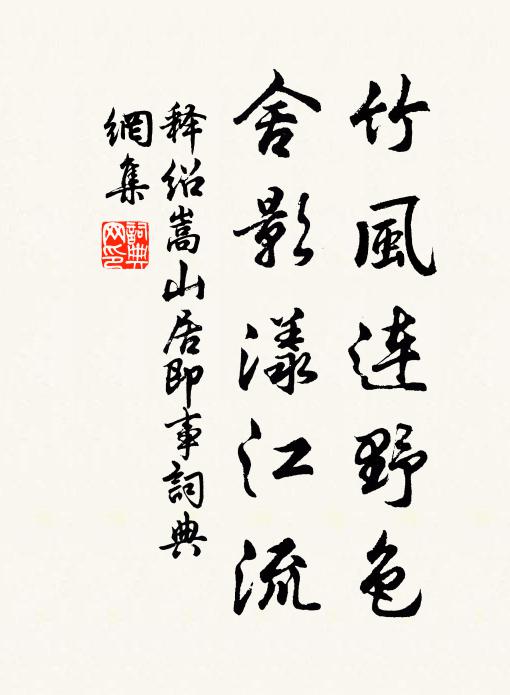 竹風連野色
舍影漾江流
释紹嵩山居即事詞典
網集
詞典网印